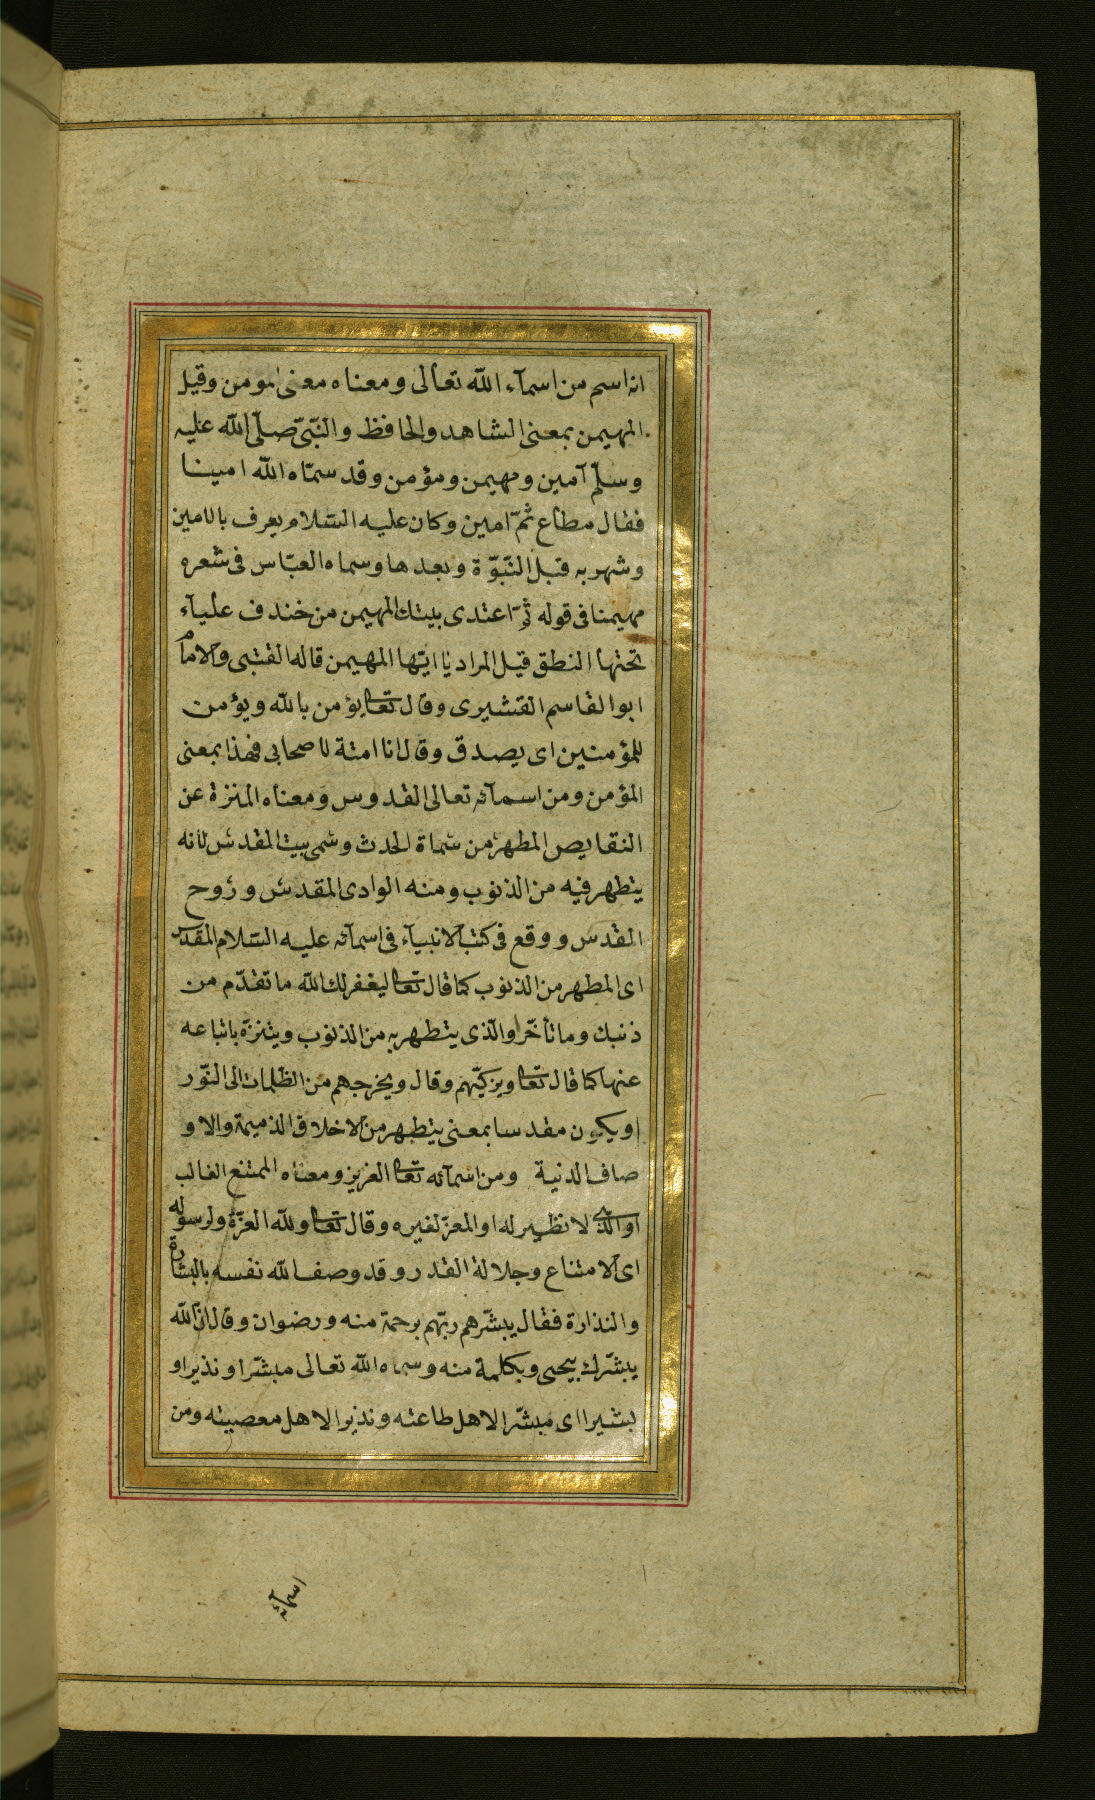 انه اسم من اسمآء الله تعالى ومعناه معنى المومن وقيل
المهيمن بمعنى الشاهد والحافظ والنّبىّ صلّى الله عليه
وسلّم آمين ومهيمن ومؤمن وقد سمّاه الله امينا
فقال مطاع ثمّ امين وكان عليه السّلام يعرف بالامين
وشهر به قبل النّبوّة وبعدها وسماه العبّاس فى شعره
مهيمنا فى قوله ثمّ اعتدى بيتك المهيمن من خندف عليآء
تحتها النطق قيل المراد يا ايّها المهيمن قاله القتبى والامام
ابوالقاسم القشيرى وقال تعا يؤمن بالله ويؤمن
للمؤمنين اى يصدق وقال انا امتة لاصحابى فهذا بمعنى
المؤمن ومن اسمآئه تعالى القدوس ومعناه المنزة عن
النقايص المطهر من سماة الحدث وسمى بيت المقدس لانه
يتطهر فيه من الذنوب ومنه الوادى المقدس وروح
القدس ووقع فى كتب الانبيآء فى اسمآئه عليه السّلام المقدس
اى المطهر من الذنوب كما قال تعا ليغفر لك الله ما تقدّم من
ذنبك وما تأخّر او الّذى يتطهر به من الذنوب ويتنزّه باتباعه
عنها كما قال تعا ويزكيّهم وقال ويخرجهم من الظلمات الى النّور
او يكون مقدسا بمعنى يتطهر من الاخلاق الذميمة والاو
صاف الدنية ومن اسمآئه تعا العزيز ومعناه الممتنع الغالب
او الّذى لا نظير له او المعز لغيره وقال تعا ولله العزّة ولرسوله
اى الامتناع وجلالة القدر وقد وصف الله نفسه بالبشارة
والنذارة فقال يبشّرهم ربّهم برحمة منه ورضوان وقال انّ الله
يبشّرك بيحيى وبكلمة منه وسماه الله تعالى مبشّرا ونذيرا و
بشيرا اى مبشّرا لاهل طاعته ونذيرا لاهل معصيته ومن
اسمآئه